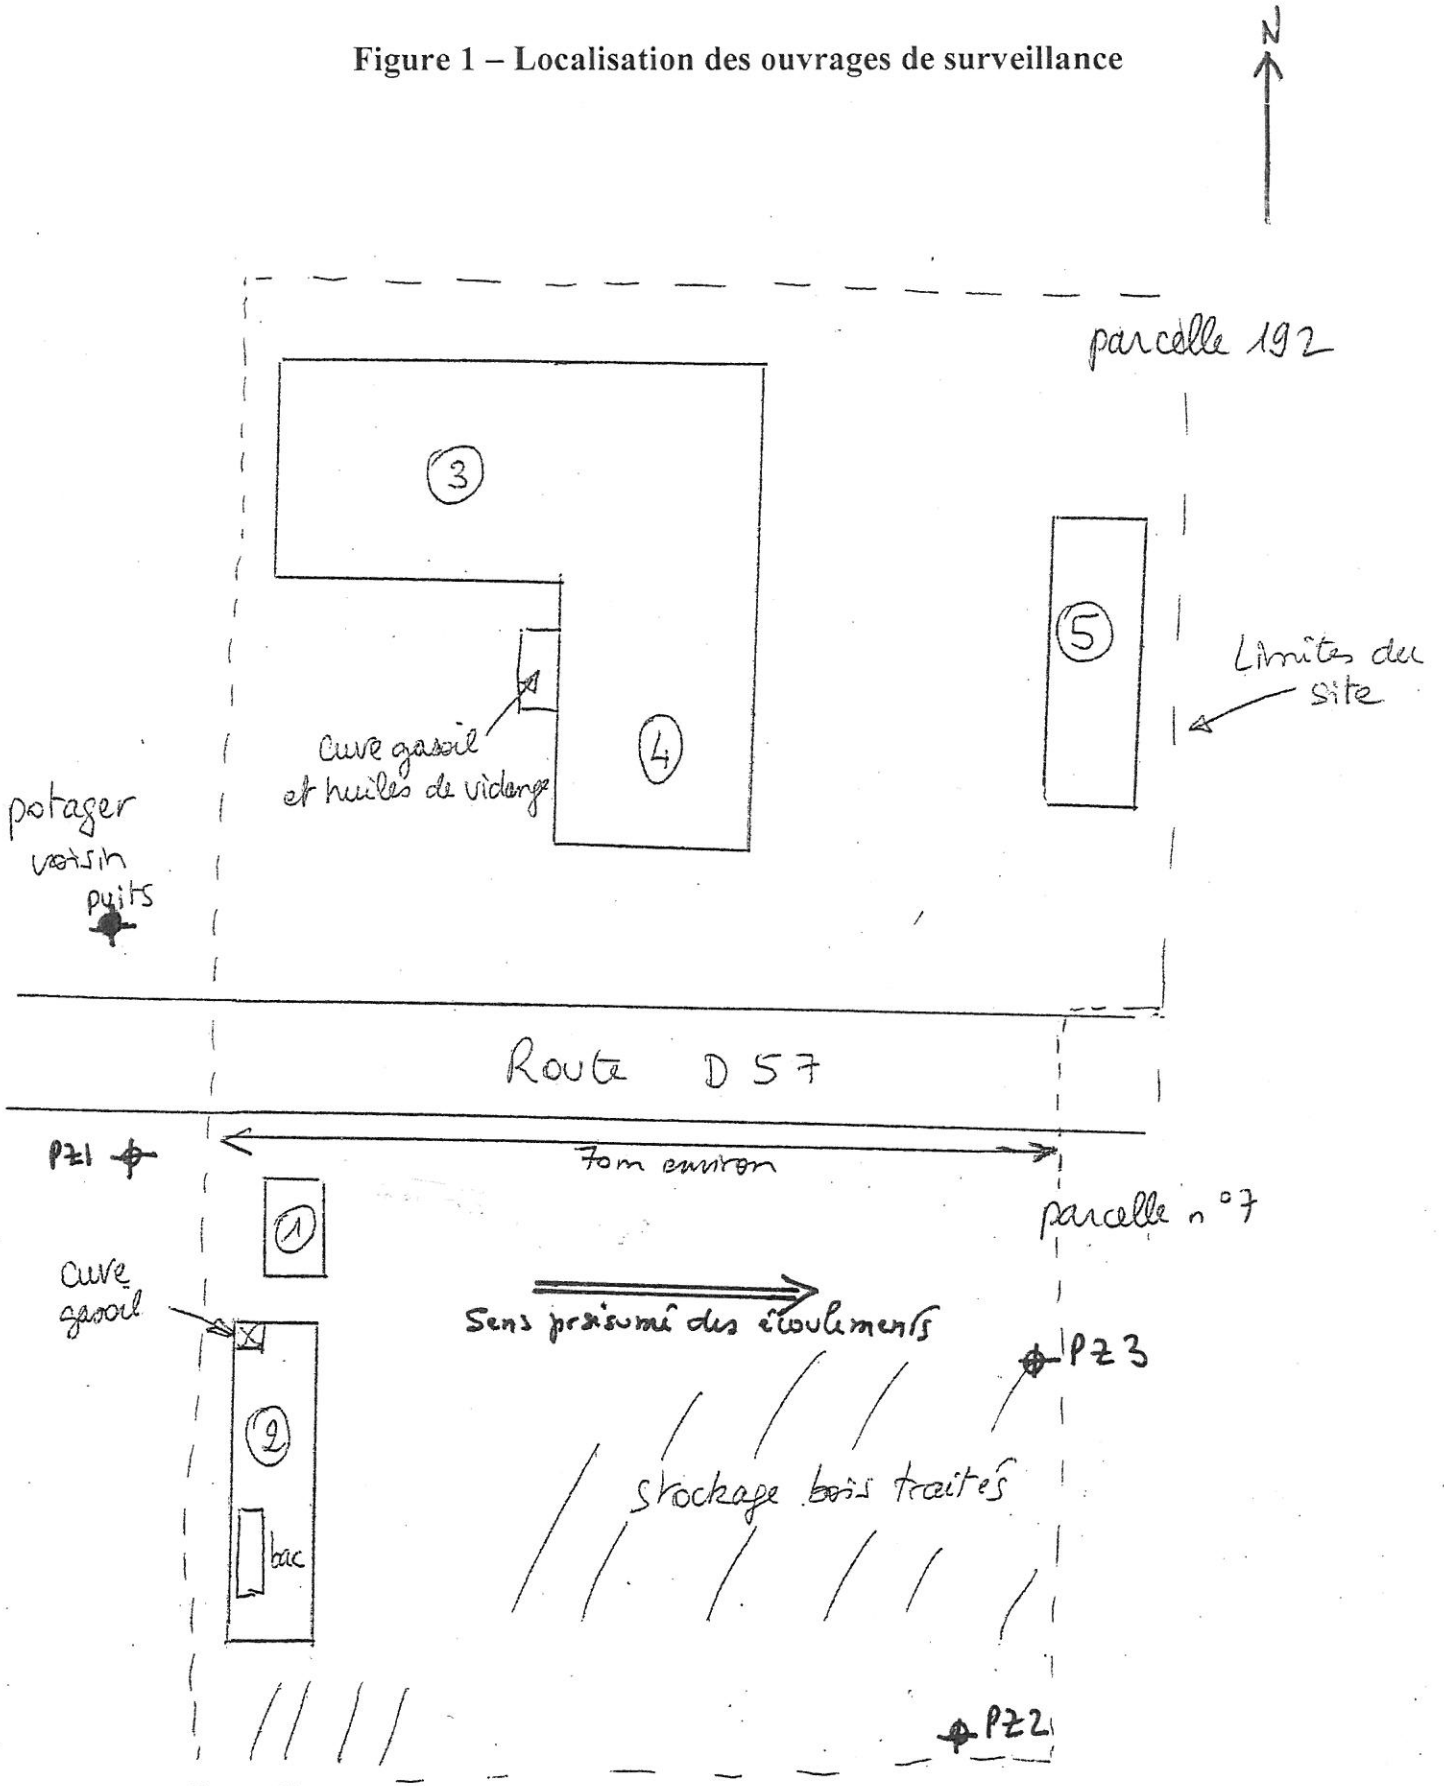 Figure 1 – Localisation des ouvrages de surveillance
N
parcelle 192
3
5
Limites du
site
cuve gasoil
et huiles de vidange
4
potager
voisin
puits
Route D 57
PZ1
70m environ
1
parcelle n°7
cuve
gasoil
Sens présumé des écoulements
PZ3
2
stockage bois traités
bac
PZ2